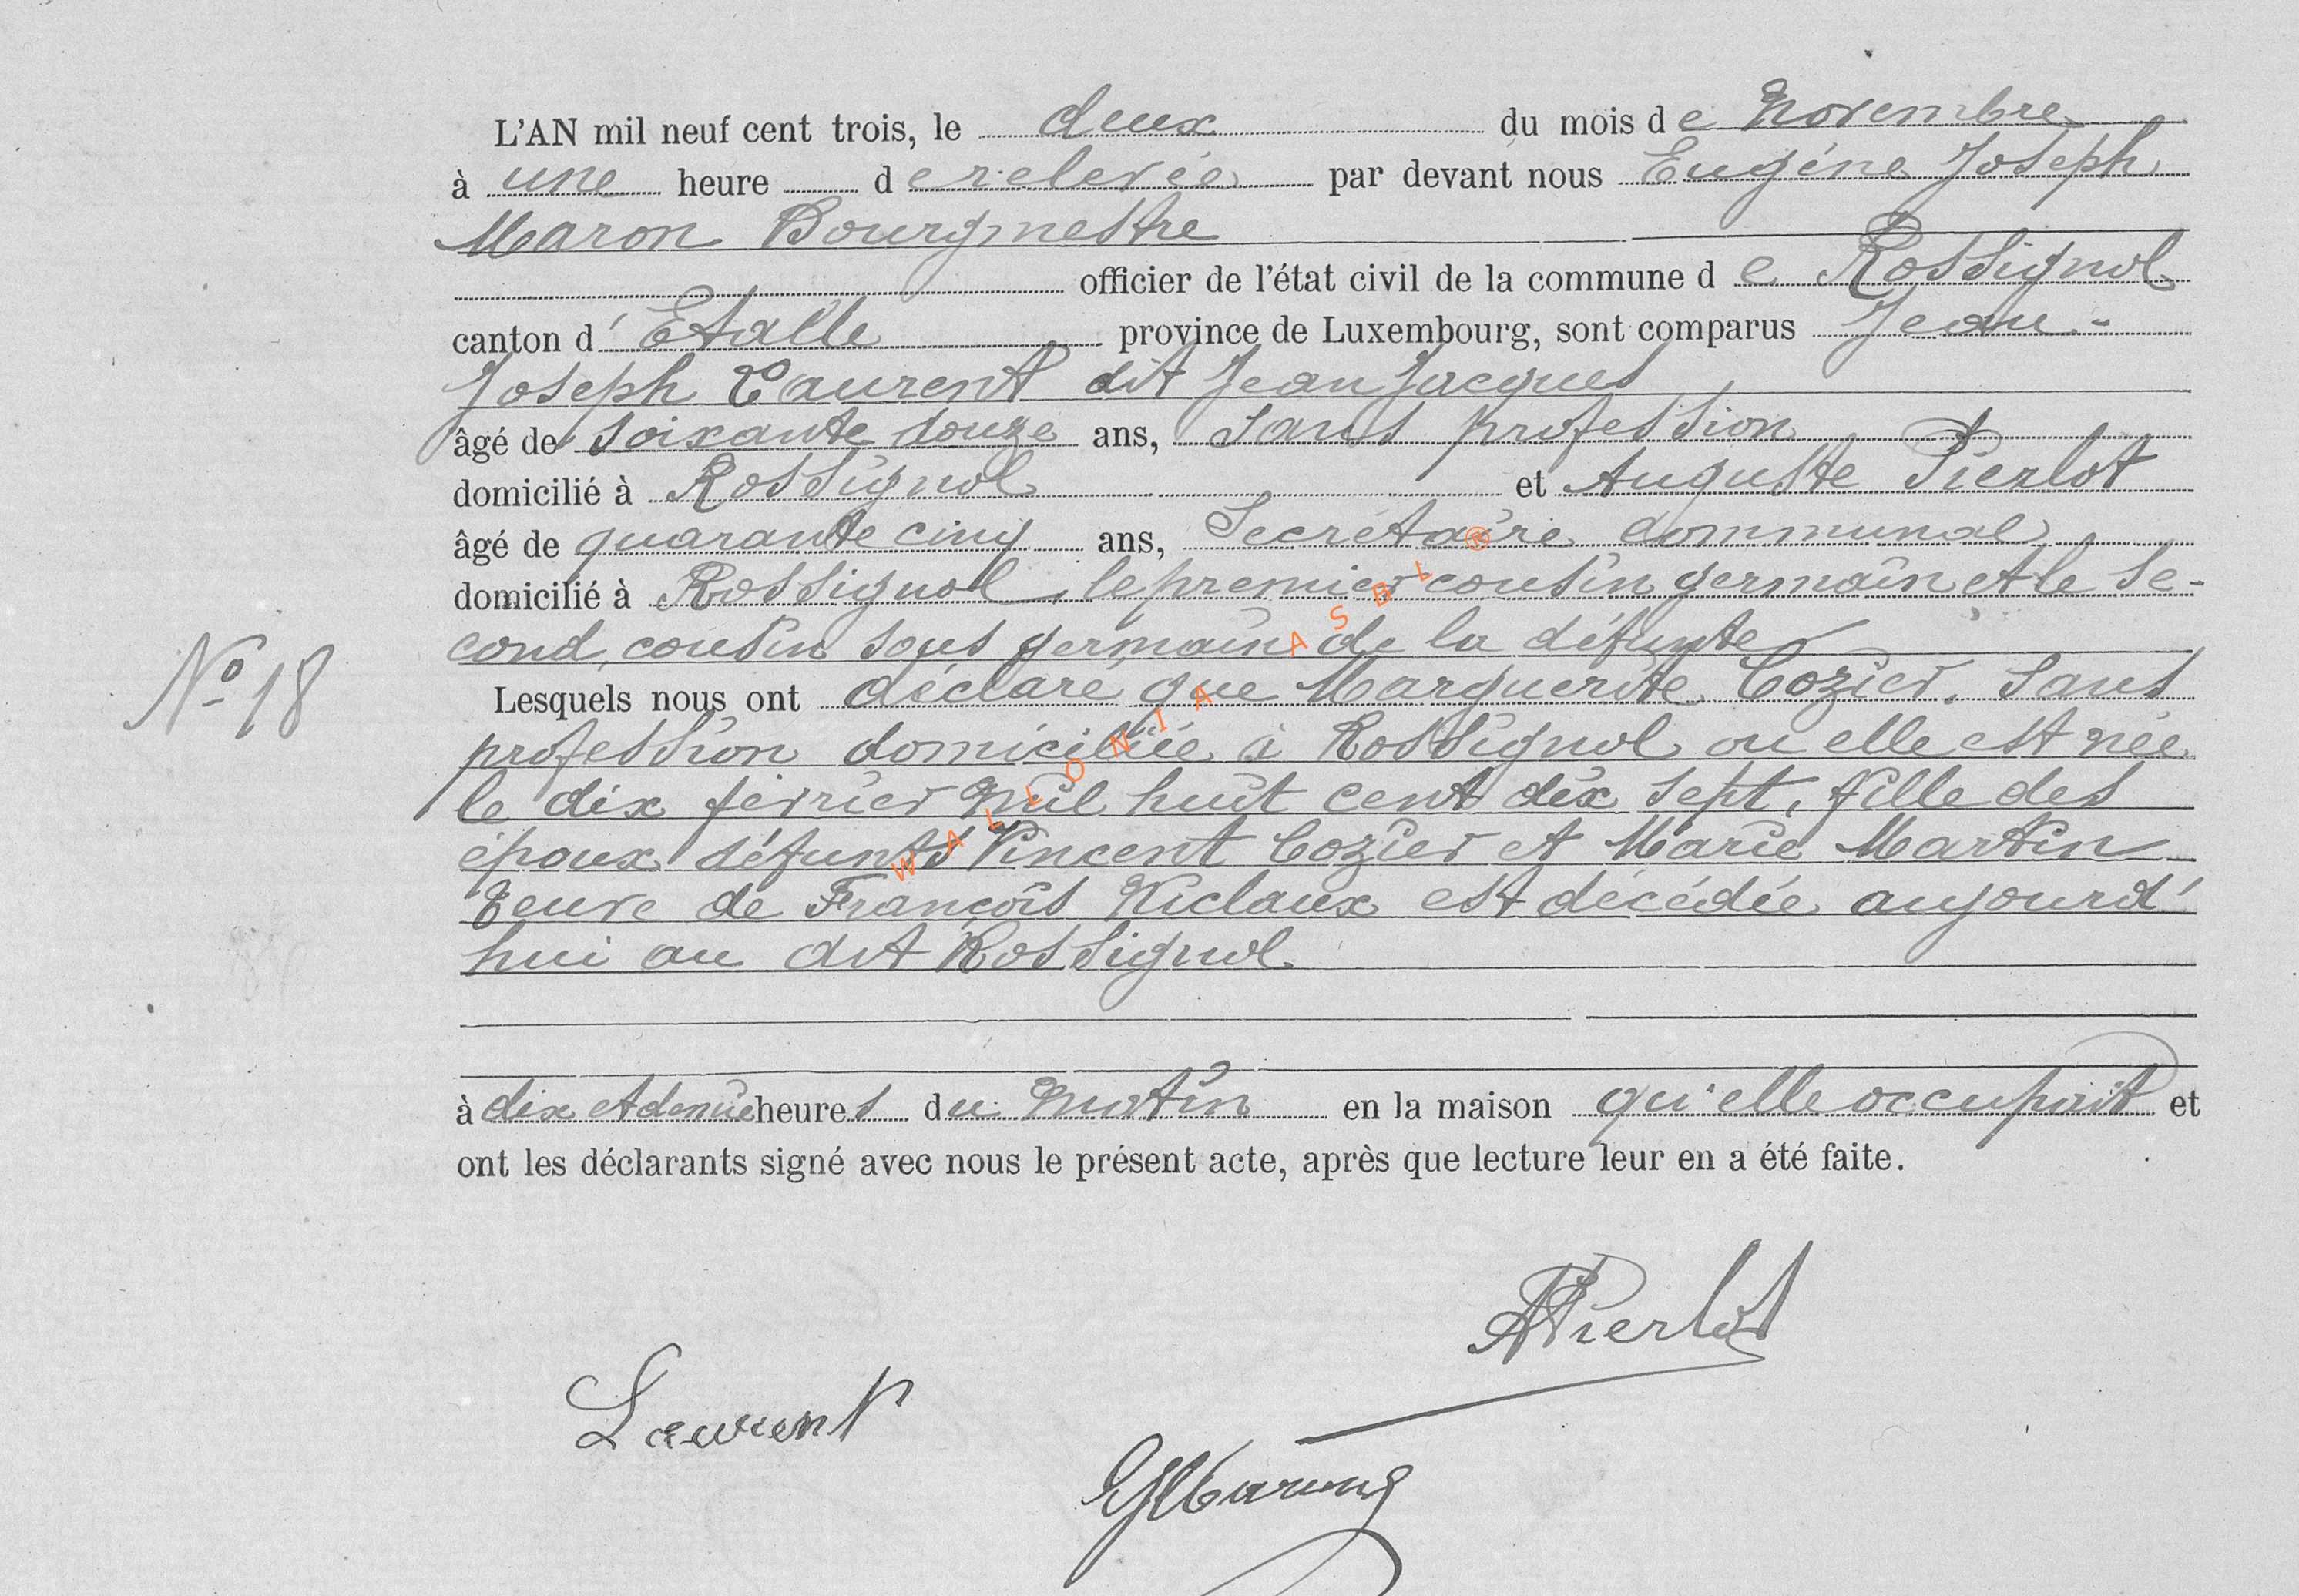 L'AN mil neuf cent trois, le deux du mois de Novembre
à une heure de relevée par devant nous Eugéne Joseph
Maron Bourgmestre
officier de l'état civil de la commune de Rossignol
canton d'Etalle province de Luxembourg, sont comparus Jean-
Joseph Laurent dit Jean Jacques
âgé de soixante douze ans, sans profession
domicilié à Rossignol et Auguste Pierlot
âgé de quarante cinq ans, Secrétaire communal
domicilié à Rossignol, le premier cousin germain et le se-
cond, cousin sous germain de la défunte
N° 18
Lesquels nous ont déclaré que Marguerite Cozier, sans
profession domiciliée à Rossignol ou elle est née
le dix fevrier mil huit cent dix sept, fille des
époux défunts Vincent Cozier et Marie Martin
Veuve de François Niclaux est décédée aujourd'
hui au dit Rossignol
à dix et demie heures du matin en la maison qu'elle occupait et
ont les déclarants signé avec nous le présent acte, après que lecture leur en a été faite.
APierlot
Laurent
EJMaron
WALLONIA ASBL ®